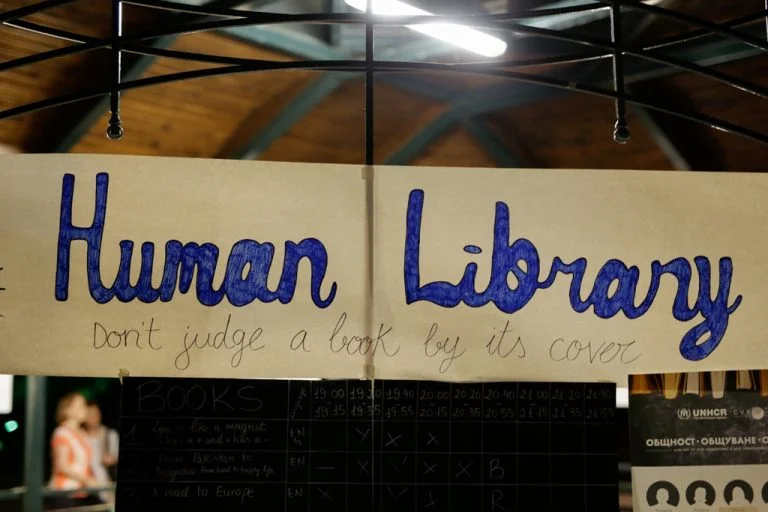 Human Library
Don't judge a book by its cover
BOOKS
19:00 19:20 19:40 20:00 20:20 20:40 21:00 21:20 21:40
19:15 19:35 19:55 20:15 20:35 20:55 21:15 21:35
1 like a magnet EN
2 From Pakistan to EN
Bulgaria from hard to happy life
3 A road to Europe EN
B
R
UNHCR CVS
ОБЩНОСТ · ОБЩУВАНЕ ·